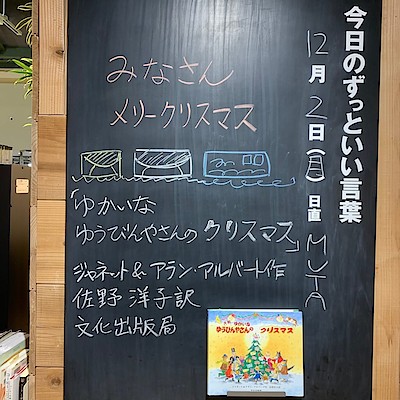 今日のずっといい言葉
12月2日(月)日直 MUTA
みなさん
メリークリスマス
「ゆかいな
ゆうびんやさんの クリスマス」
ジャネット&アラン・アルバート作
佐野 洋子訳
文化出版局
ゆかいな
ゆうびんやさんの クリスマス